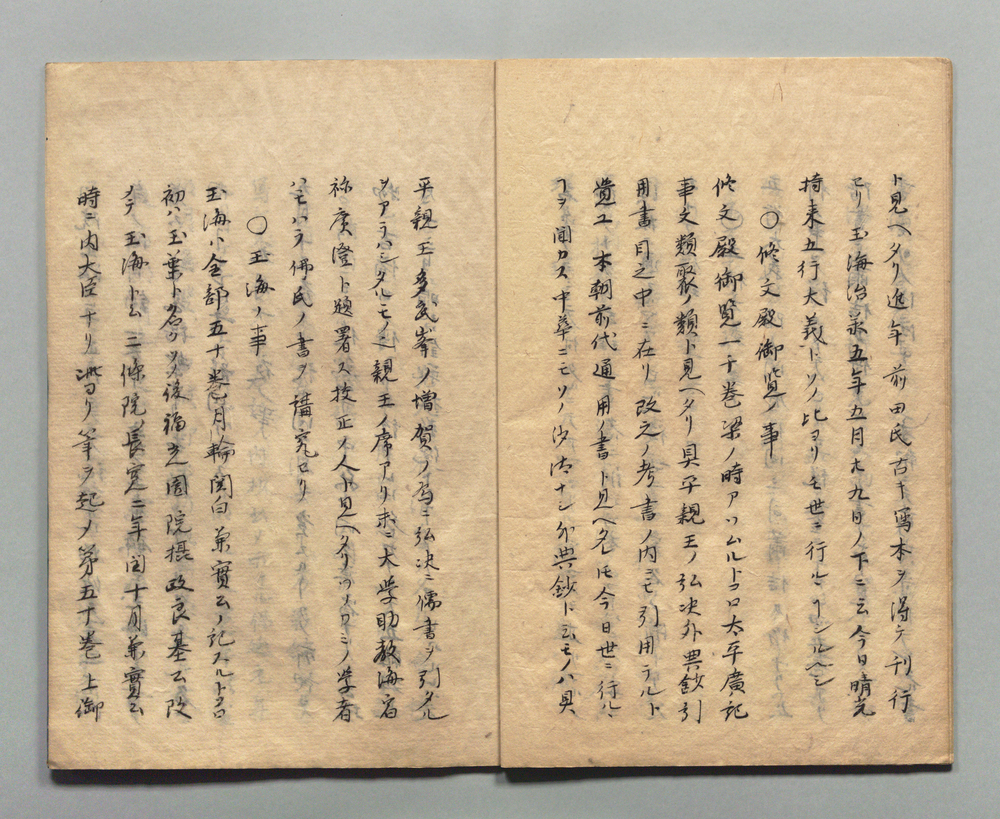 ト見ヘタリ近年前田氏古キ寫本ヲ得テ刊行
セリ玉海治承五年五月廿九日ノ下ニ云今日晴光
持来五行大義トソノ比ヨリモ世ニ行ルヽヿシルヘシ
〇修文殿御覧ノ事
修文殿御覧一千巻梁ノ時アツムルトコロ太平廣記
事文類聚ノ類ト見ヘタリ具平親王ノ弘决外典鈔引
用書目之中ニ在リ改之ノ考書ノ内ニモ引用テルト
覚エ本朝前代通用ノ書ト見ヘタレ𪜈今日世ニ行ルヽ
ヿヲ聞カス中華ニモソノ沙汰ナシ外典鈔ト云モノハ具
平親王多武峯ノ増賀ノ為ニ弘决ニ儒書ヲ引タル
ヲアラハシタルモノ也親王ノ序アリ末ニ大学助教海宿
祢廣澄ト題署ス校正ノ人ト見ヘタリソノカミノ学者
ハモハラ佛氏ノ書ヲ講究セリ
〇玉海ノ事
玉海ハ全部五十巻月輪関白兼實公ノ記スルトコロ
初ハ玉葉ト名ケシヲ後福光園院摂政良基公改
メテ玉海ト云二條院ノ長寛二年閏十月兼實公
時ニ内大臣ナリ此ヨリ筆ヲ起ノ第五十巻上御